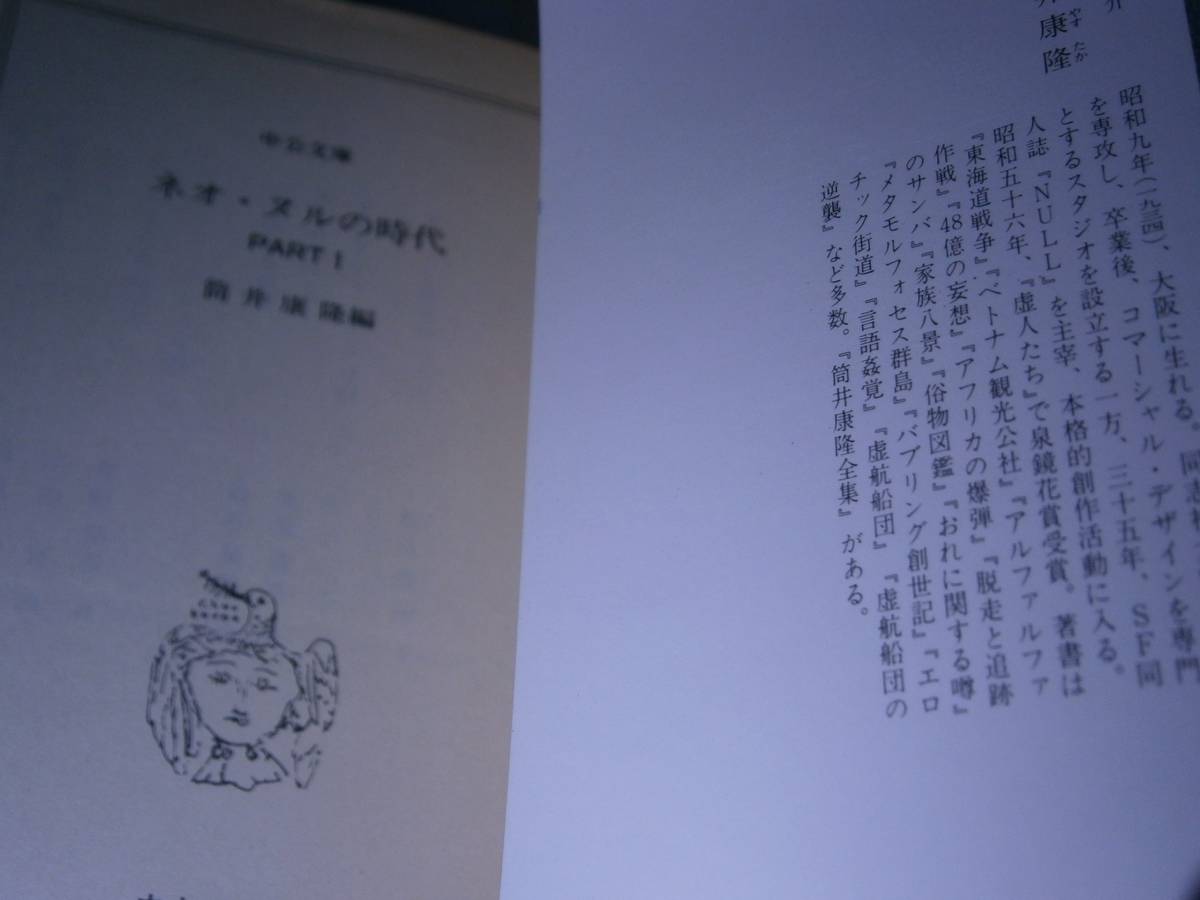 中公文庫
ネオ・ヌルの時代
PART I
筒井康隆編
介
井康隆
やすたか
昭和九年(一九三四)、大阪に生れる。同志社
を専攻し、卒業後、コマーシャル・デザインを専門
とするスタジオを設立する一方、三十五年、SF同
人誌『NULL』を主宰、本格的創作活動に入る。
昭和五十六年、『虚人たち』で泉鏡花賞受賞。著書は
『東海道戦争』『ベトナム観光公社』『アルファルファ
作戦』『48億の妄想』『アフリカの爆弾』『脱走と追跡
のサンバ』『家族八景』『俗物図鑑』『おれに関する噂』
『メタモルフォセス群島』『バブリング創世記』『エロ
チック街道』『言語姦覚』『虚航船団』『虚航船団の
逆襲』など多数。『筒井康隆全集』がある。